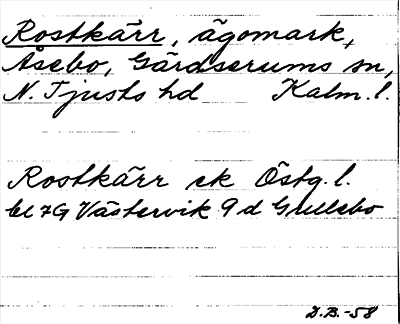 Rostkärr, ägomark,
Åsebo, Gärdserums sn,
N. Tjusts hd Kalm. l.
Rostkärr ek Östg. l.
bl 7G Västervik 9 d Gullebo
D.B.-58